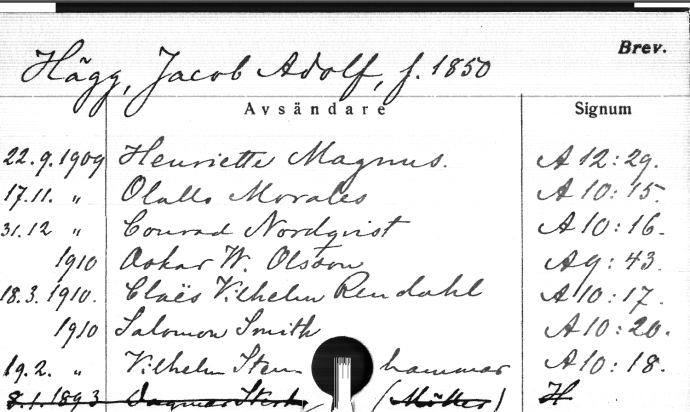 Brev.
Hägg, Jacob Adolf, f. 1850
Avsändare Signum
22.9.1909 Henriette Magnus. A 12:29.
17.11. " Olallo Morales A 10:15.
31.12 " Conrad Nordqvist A 10:16.
1910 Oskar W. Olsson A 9:43.
18.3.1910. Claës Vilhelm Rendahl A 10:17.
1910 Salomon Smith A 10:20.
19.2. " Vilhelm Sten hammar A 10:18.
8.1.1893 Dagmar H